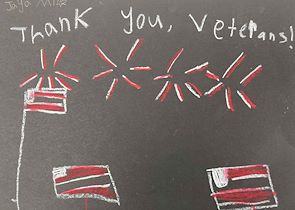 Jaya
Thank you, Veterans!